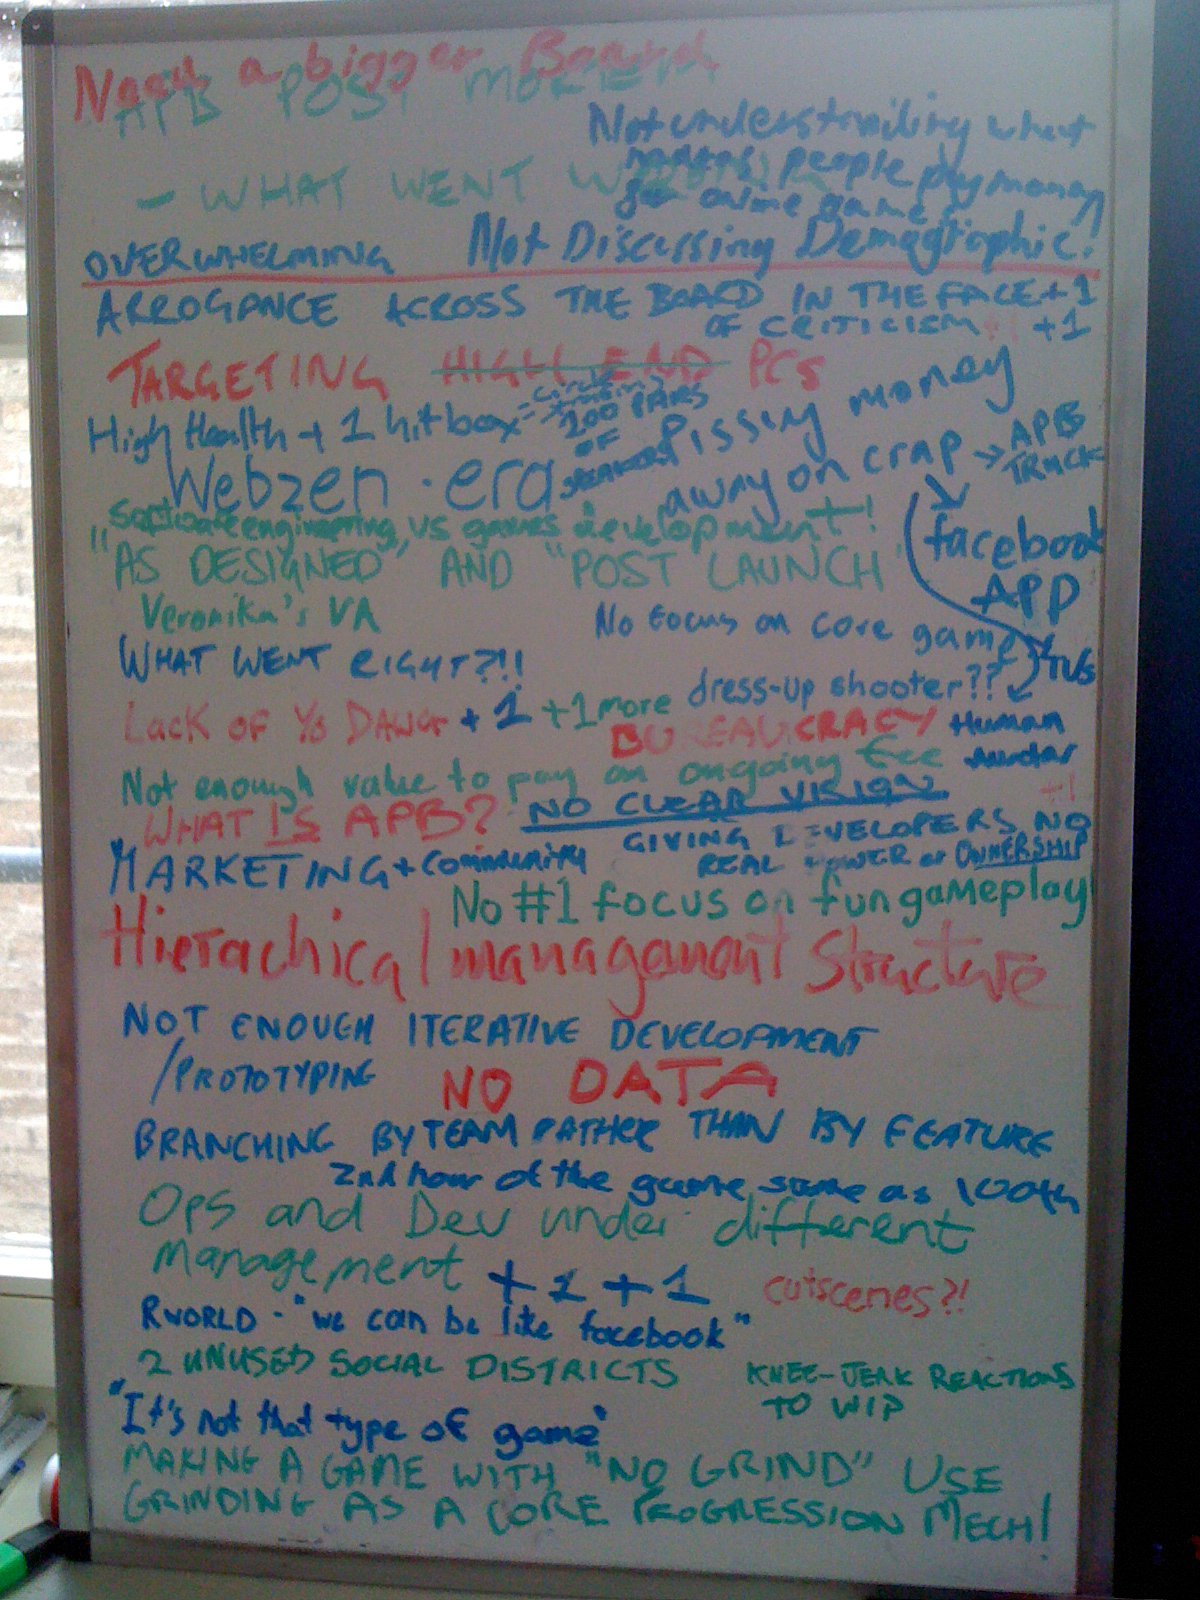 Need a bigger Board
APB POST MORTEM
Not understanding what
makes people pay money
for online games
- WHAT WENT WRONG
Not Discussing Demographic!
OVERWHELMING
ARROGANCE ACROSS THE BOARD IN THE FACE +1
OF CRITICISM +1 +1
TARGETING HIGH END PCs
High Health + 1 hitbox =
200 PAIRS
OF
SPEAKERS
Pissing money
away on crap → APB
TRUCK
Webzen · era
facebook
APP
TVs
Human
software engineering vs games development!
"AS DESIGNED" AND "POST LAUNCH"
Veronika's VA
No Focus on core game
WHAT WENT RIGHT?!!
dress-up shooter??
Lack of Yo Dawg + 1 +1 more
BUREAUCRACY
Not enough value to pay an ongoing fee
WHAT IS APB?
NO CLEAR VISION
+1
GIVING DEVELOPERS NO
REAL POWER or OWNERSHIP
MARKETING + Community
No #1 focus on fun gameplay
Hierachical management Structure
NOT ENOUGH ITERATIVE DEVELOPMENT
/PROTOTYPING
NO DATA
BRANCHING BY TEAM RATHER THAN BY FEATURE
2nd hour of the game same as 100th
Ops and Dev under different
management +1 +1
cutscenes?!
RWORLD - "we can be like facebook"
2 UNUSED SOCIAL DISTRICTS
KNEE-JERK REACTIONS
TO WIP
"It's not that type of game"
MAKING A GAME WITH "NO GRIND" USE
GRINDING AS A CORE PROGRESSION MECH!